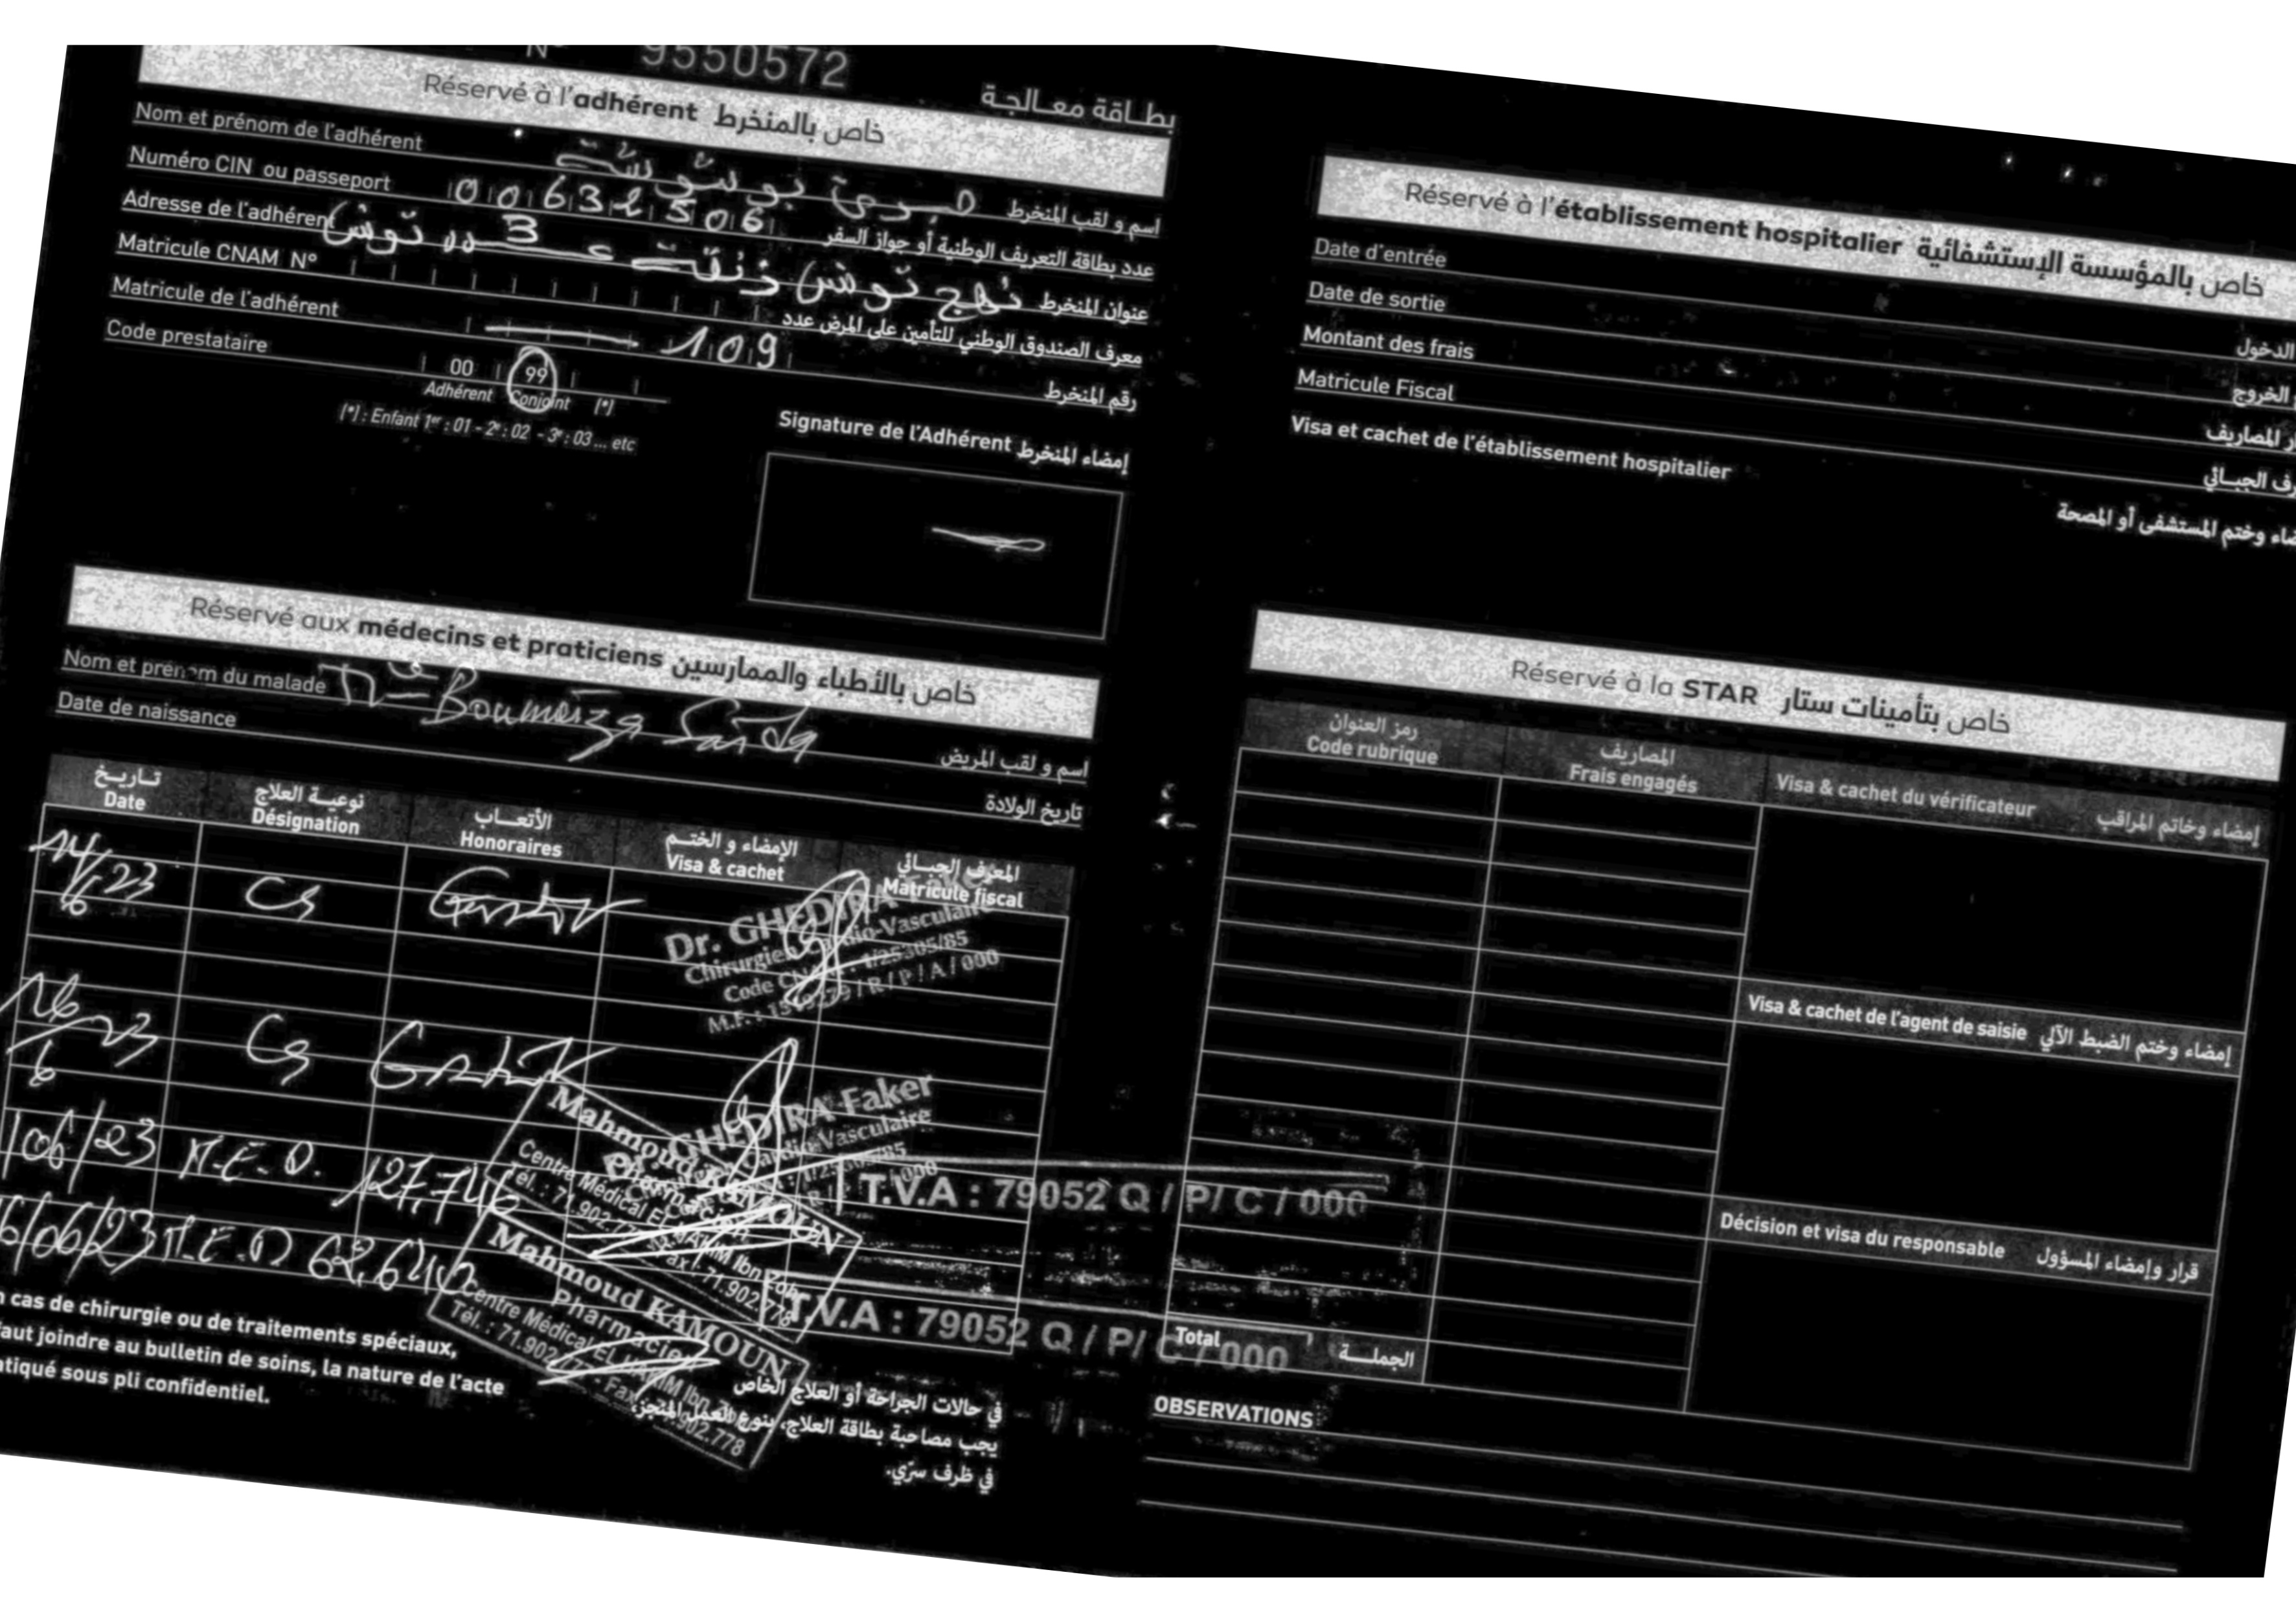 N° 9550572
بطـاقة معـالجـة
Réservé à l'adhérent خاص بالمنخرط
Nom et prénom de l'adhérent اسم و لقب المنخرط
Numéro CIN ou passeport 00632506 عدد بطاقة التعريف الوطنية أو جواز السفر
Adresse de l'adhérent نهج تونس زنقة عـ 3 ـدد تونس عنوان المنخرط
Matricule CNAM N° معرف الصندوق الوطني للتأمين على المرض عدد
Matricule de l'adhérent 109 رقم المنخرط
Code prestataire 00 99
Adhérent Conjoint (*)
(*) : Enfant 1er : 01 - 2e : 02 - 3e : 03 ... etc
Signature de l'Adhérent إمضاء المنخرط
Réservé aux médecins et praticiens خاص بالأطباء والممارسين
Nom et prénom du malade Boumaiza Saida اسم و لقب المريض
Date de naissance تاريخ الولادة
تـاريـخ نوعيـة العلاج الأتعـاب الإمضاء و الختـم المعرف الجبـائي
Date Désignation Honoraires Visa & cachet Matricule fiscal
14/6/23 Cs Gratuit
Dr. GHEDIRA
Chirurgien Cardio-Vasculaire
Code CNAM : 1/25305/85
/ R / P / A / 000
16/6/23 Cs Gratuit
GHEDIRA Faker
Cardio-Vasculaire
/06/23 M.E.D. 127,746
Mahmoud KAMOUN
Pharmacien
Centre Médical EL HAKIM Ibn Zohr
Tél. : 71.902.777 - Fax : 71.902.778
T.V.A : 79052 Q / P/ C / 000
16/06/23 M.E.D 62,640
Mahmoud KAMOUN
Pharmacien
Centre Médical EL HAKIM Ibn Zohr
Tél. : 71.902.777 - Fax : 71.902.778
T.V.A : 79052 Q / P/ C / 000
n cas de chirurgie ou de traitements spéciaux,
faut joindre au bulletin de soins, la nature de l'acte
atiqué sous pli confidentiel.
في حالات الجراحة أو العلاج الخاص
يجب مصاحبة بطاقة العلاج، بنوع العمل المنجز،
في ظرف سرّي.
Réservé à l'établissement hospitalier خاص بالمؤسسة الإستشفائية
Date d'entrée الدخول
Date de sortie الخروج
Montant des frais المصاريف
Matricule Fiscal الجبـائي
Visa et cachet de l'établissement hospitalier ضاء وختم المستشفى أو المصحة
Réservé à la STAR خاص بتأمينات ستار
رمز العنوان المصاريف
Code rubrique Frais engagés Visa & cachet du vérificateur إمضاء وخاتم المراقب
Visa & cachet de l'agent de saisie إمضاء وختم الضبط الآلي
Décision et visa du responsable قرار وإمضاء المسؤول
Total الجملـــة
OBSERVATIONS